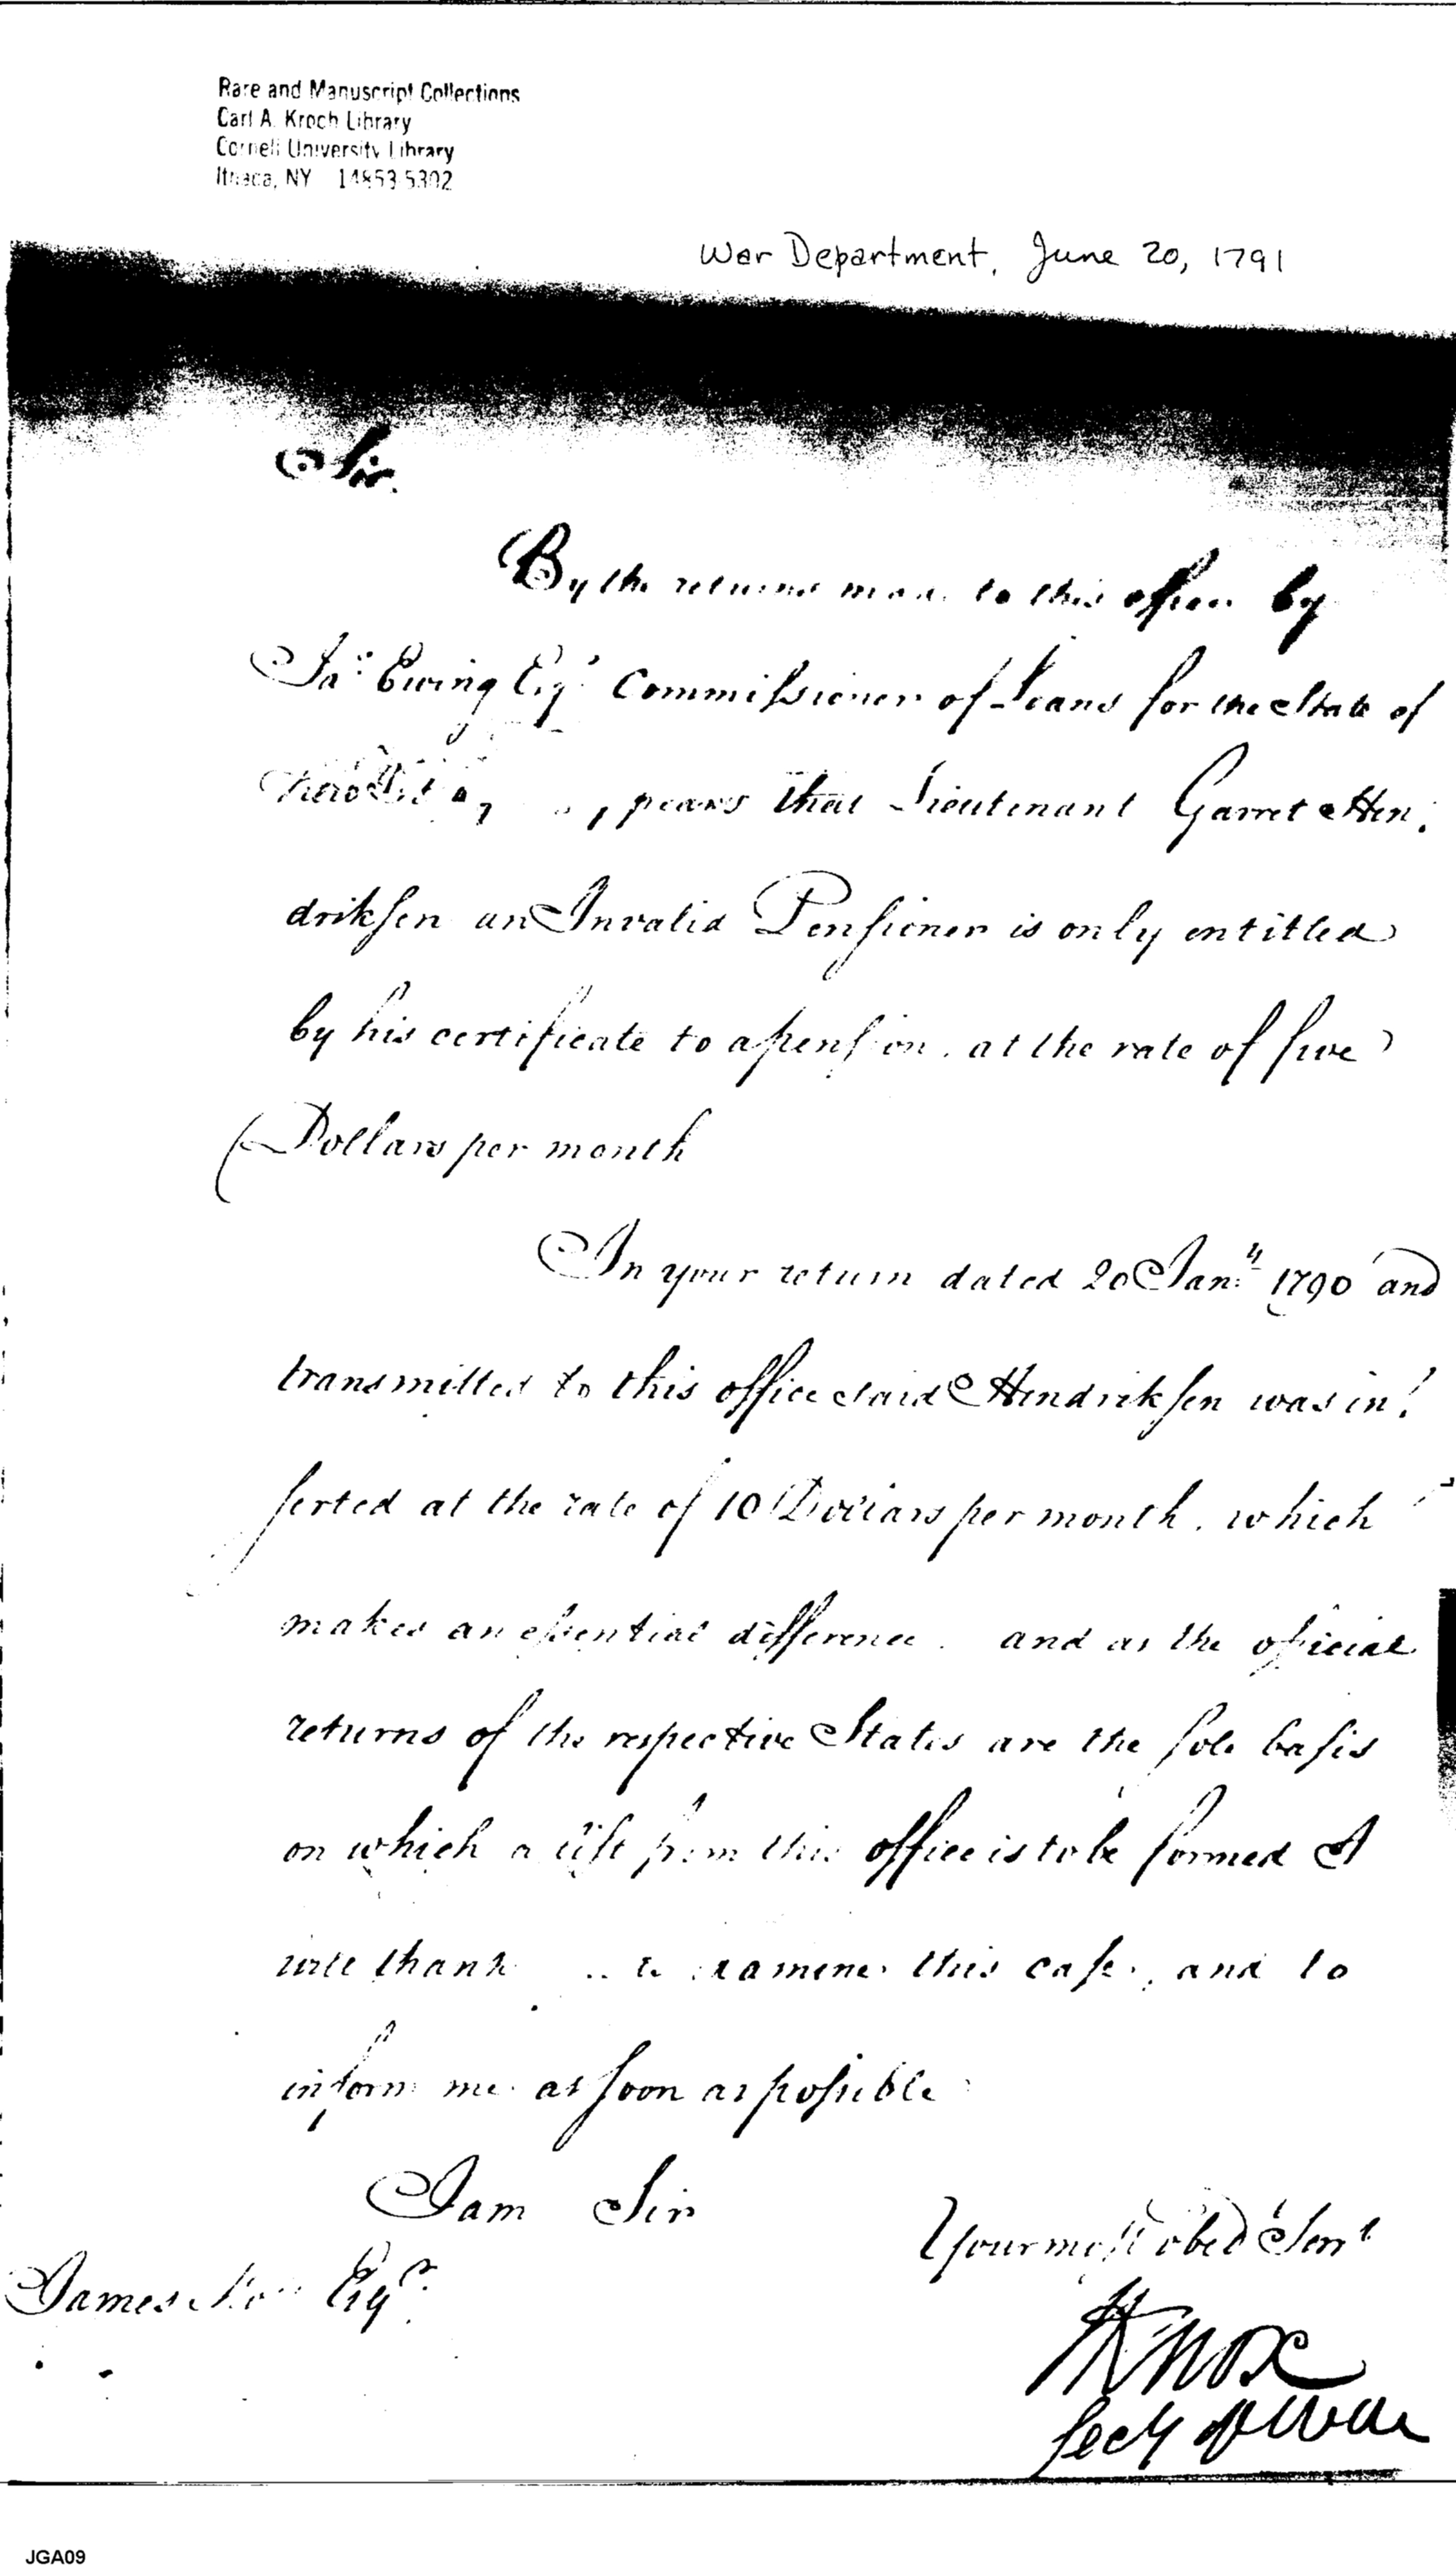 Rare and Manuscript Collections
Carl A. Kroch Library
Cornell University Library
Ithaca, NY 14853-5302
War Department, June 20, 1791
Sir.
By the returns made to this office by
Ja.s Ewing Esq.r Commissioner of Loans for the State of
New Jersey appears that Lieutenant Garret Hen:
driksen an Invalid Pensioner is only entitled
by his certificate to a pension, at the rate of five
Dollars per month
In your return dated 20 Jan.y 1790 and
transmitted to this office said Hendriksen was in:
serted at the rate of 10 Dollars per month, which
makes an essential difference. and as the official
returns of the respective States are the sole basis
on which a list from this office is to be formed I
will thank to examine this case, and to
inform me as soon as possible
I am Sir
Your most obed Serv.t
James Esq.r
HKnox
Secy of War
JGA09